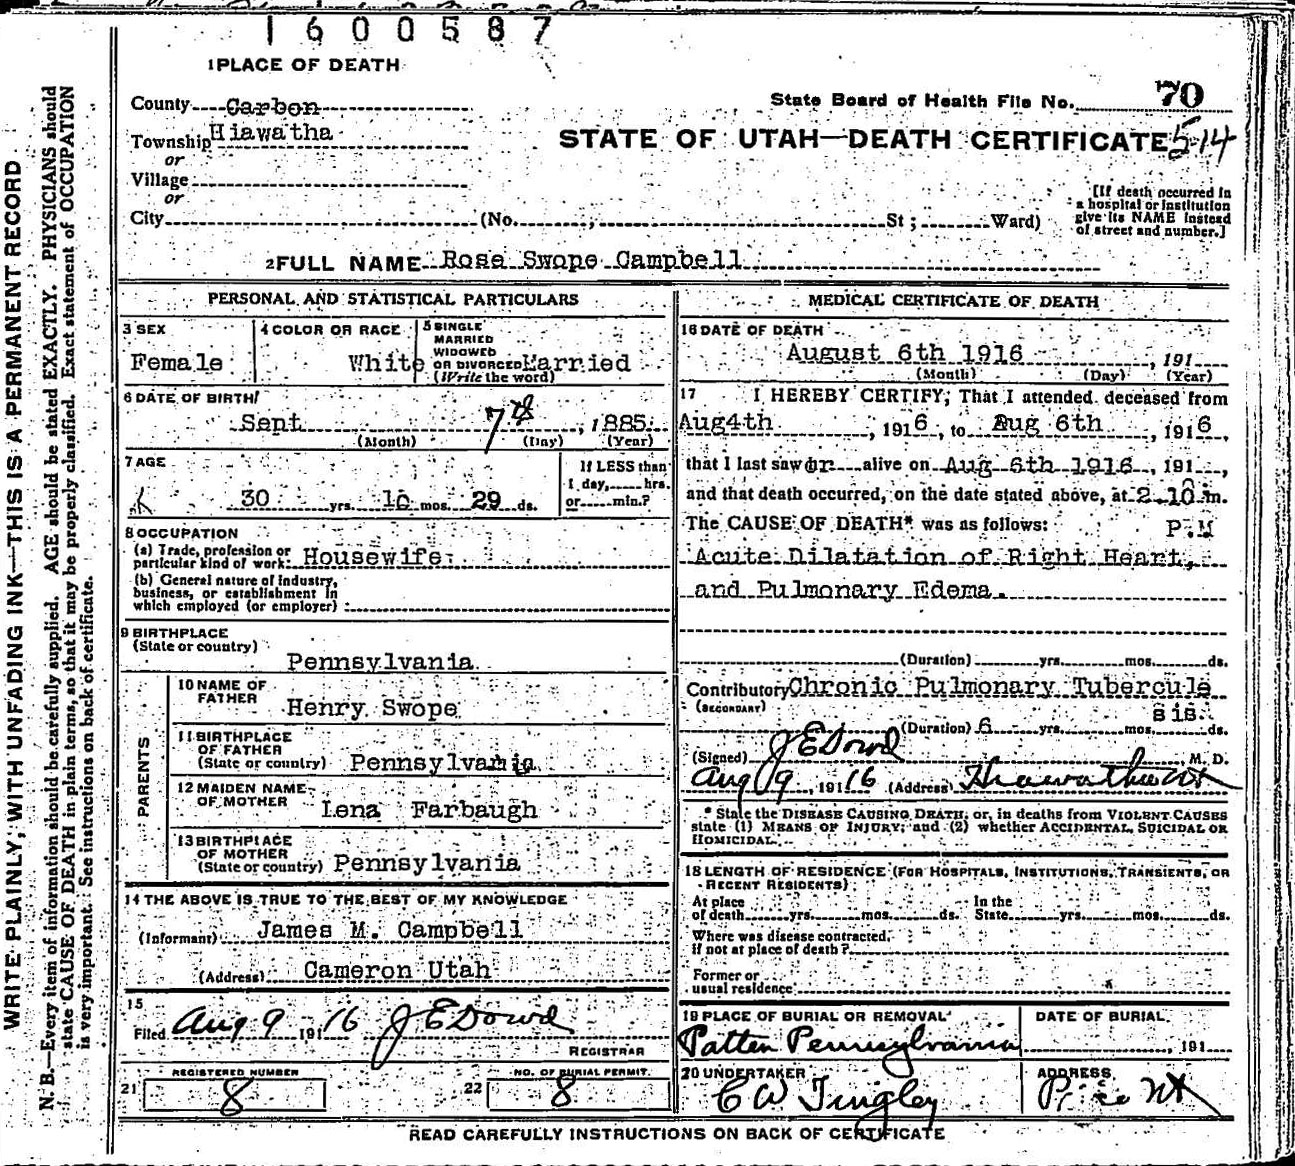 1600587
1 PLACE OF DEATH
County Carbon
State Board of Health File No. 70
Township Hiawatha
STATE OF UTAH—DEATH CERTIFICATE 514
or
Village
or
City (No. , St ; Ward)
[If death occurred in
a hospital or institution
give its NAME instead
of street and number.]
2 FULL NAME Rose Swope Campbell
PERSONAL AND STATISTICAL PARTICULARS
3 SEX
Female
4 COLOR OR RACE
White
5 SINGLE
MARRIED
WIDOWED
OR DIVORCED Married
(Write the word)
6 DATE OF BIRTH
Sept 7th , 1885
(Month) (Day) (Year)
7 AGE
30 yrs. 10 mos. 29 ds.
If LESS than
1 day, hrs.
or min.?
8 OCCUPATION
(a) Trade, profession or
particular kind of work: Housewife
(b) General nature of industry,
business, or establishment in
which employed (or employer) :
9 BIRTHPLACE
(State or country)
Pennsylvania
PARENTS
10 NAME OF
FATHER
Henry Swope
11 BIRTHPLACE
OF FATHER
(State or country) Pennsylvania
12 MAIDEN NAME
OF MOTHER
Lena Farbaugh
13 BIRTHPLACE
OF MOTHER
(State or country) Pennsylvania
14 THE ABOVE IS TRUE TO THE BEST OF MY KNOWLEDGE
(Informant) James M. Campbell
(Address) Cameron Utah
15
Filed Aug 9 1916 J E Dowd
REGISTRAR
REGISTERED NUMBER
21 8
NO. OF BURIAL PERMIT.
22 8
MEDICAL CERTIFICATE OF DEATH
16 DATE OF DEATH
August 6th 1916 , 191
(Month) (Day) (Year)
17 I HEREBY CERTIFY, That I attended deceased from
Aug 4th , 1916, to Aug 6th , 1916,
that I last saw her alive on Aug 6th 1916 , 191 ,
and that death occurred, on the date stated above, at 2.10 m.
The CAUSE OF DEATH* was as follows: P.M
Acute Dilatation of Right Heart,
and Pulmonary Edema.
(Duration) yrs. mos. ds.
Contributory Chronic Pulmonary Tubercule
(SECONDARY) sis.
(Duration) 6 yrs. mos. ds.
(Signed) J E Dowd M. D.
Aug 9, 1916 (Address) Hiawatha Ut
* State the DISEASE CAUSING DEATH, or, in deaths from VIOLENT CAUSES
state (1) MEANS OF INJURY; and (2) whether ACCIDENTAL, SUICIDAL OR
HOMICIDAL.
18 LENGTH OF RESIDENCE (FOR HOSPITALS, INSTITUTIONS, TRANSIENTS, OR
RECENT RESIDENTS)
At place
of death yrs. mos. ds.
In the
State yrs. mos. ds.
Where was disease contracted,
if not at place of death?
Former or
usual residence
19 PLACE OF BURIAL OR REMOVAL
Patten Pennsylvania
DATE OF BURIAL
, 191
20 UNDERTAKER
C W Tingley
ADDRESS
Price Ut
READ CAREFULLY INSTRUCTIONS ON BACK OF CERTIFICATE
WRITE PLAINLY, WITH UNFADING INK—THIS IS A PERMANENT RECORD
N. B.—Every item of information should be carefully supplied. AGE should be stated EXACTLY. PHYSICIANS should
state CAUSE OF DEATH in plain terms, so that it may be properly classified. Exact statement of OCCUPATION
is very important. See instructions on back of certificate.